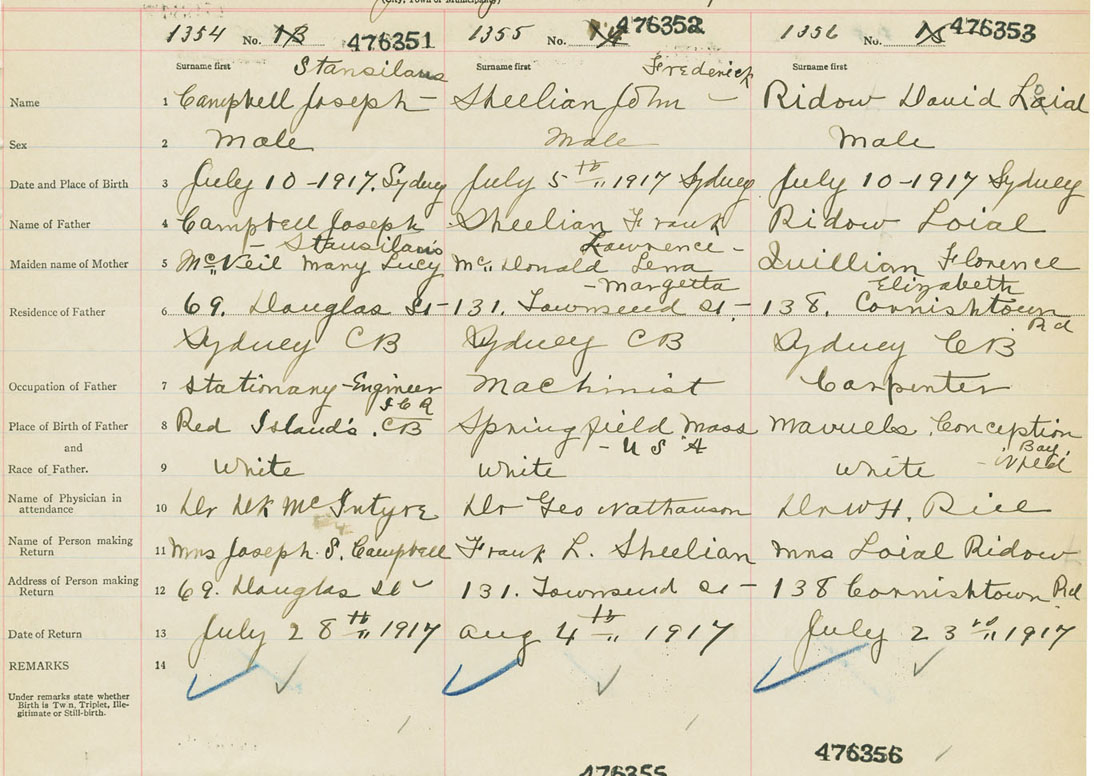 (City, Town or Municipality)
1354 No. 13 476351 1355 No. 14 476352 1356 No. 15 476353
Surname first Stansilaus Surname first Frederick Surname first
Name 1 Campbell Joseph – Sheelian John – Ridow David Loial
Sex 2 Male Male Male
Date and Place of Birth 3 July 10 – 1917. Sydney July 5th 1917 Sydney July 10 – 1917 Sydney
Name of Father 4 Campbell Joseph Sheelian Frank Ridow Loial
– Stansilaus Lawrence –
Maiden name of Mother 5 Mc Neil Mary Lucy Mc Donald Lena Quillian Florence
– Margetta – Elizabeth
Residence of Father 6 69. Douglas St – 131. Townsend St. – 138. Cornishtown Rd
Sydney CB Sydney CB Sydney CB
Occupation of Father 7 Stationary – Engineer Machinist Carpenter
I C R
Place of Birth of Father 8 Red Island's. CB Springfield Mass Conception
and – U S A Bay,
Race of Father. 9 White White White – Nfld
Name of Physician in
attendance 10 Dr DK McIntyre Dr Geo Nathanson Dr WH. Rice
Name of Person making
Return 11 Mrs Joseph. S. Campbell Frank L. Sheelian Mrs Loial Ridow
Address of Person making
Return 12 69. Douglas St – 131. Townsend St – 138 Cornishtown Rd
Date of Return 13 July 28th 1917 Aug 4th 1917 July 23rd 1917
REMARKS 14
Under remarks state whether
Birth is Twin, Triplet, Ille-
gitimate or Still-birth.
476355 476356